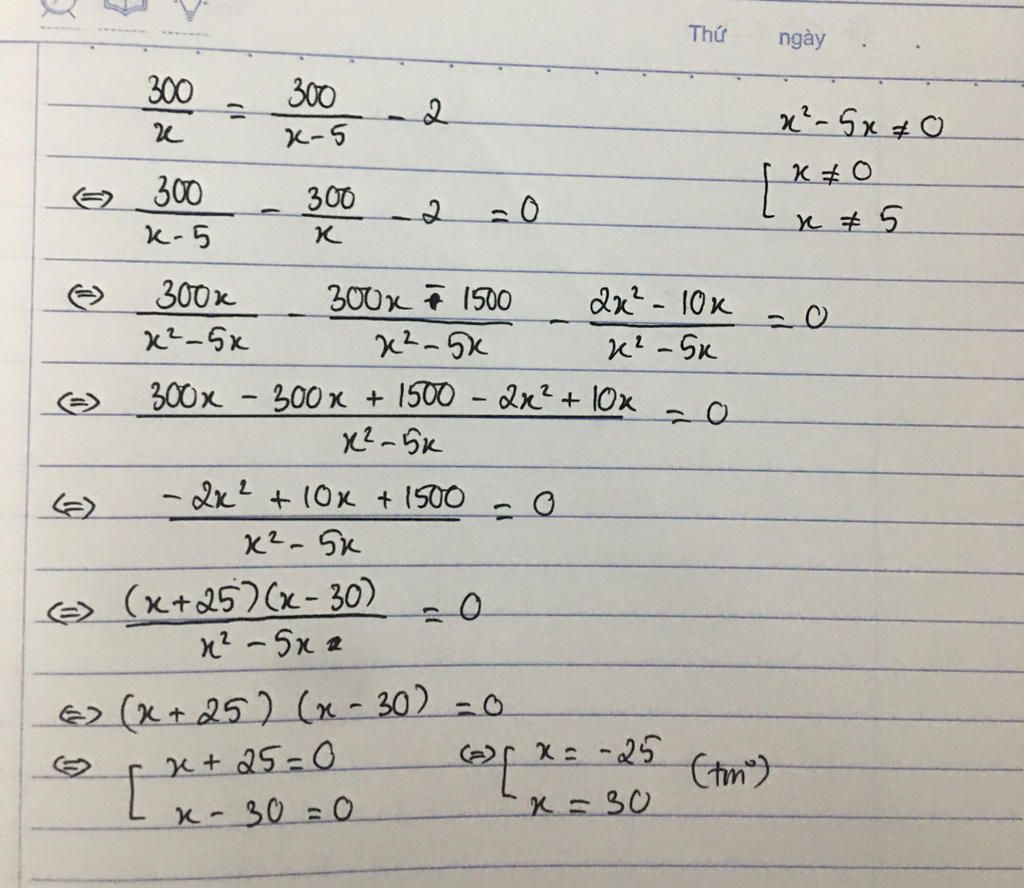 Thứ ngày . .
300/x = 300/(x-5) - 2
x² - 5x ≠ 0
[ x ≠ 0
x ≠ 5
⇔ 300/(x-5) - 300/x - 2 = 0
⇔ 300x/(x²-5x) - (300x - 1500)/(x²-5x) - (2x² - 10x)/(x²-5x) = 0
⇔ (300x - 300x + 1500 - 2x² + 10x)/(x²-5x) = 0
⇔ (-2x² + 10x + 1500)/(x²-5x) = 0
⇔ (x+25)(x-30)/(x²-5x) = 0
⇔ (x+25)(x-30) = 0
⇔ [ x + 25 = 0 ⇔ [ x = -25 (tm)
x - 30 = 0 x = 30